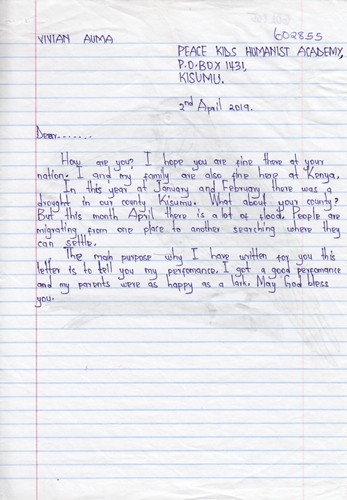 VIVIAN AUMA
602855
PEACE KIDS HUMANIST ACADEMY,
P.O.BOX 1431,
KISUMU.
2nd April 2019.
Dear.......
How are you? I hope you are fine there at your
nation. I and my family are also fine here at Kenya.
In this year at January and February there was a
drought in our county Kisumu. What about your county?
But this month April there is a lot of flood. People are
migrating from one place to another searching where they
can settle.
The main purpose why I have written for you this
letter is to tell you my perfomance. I got a good perfomance
and my parents were as happy as a lark. May God bless
you.